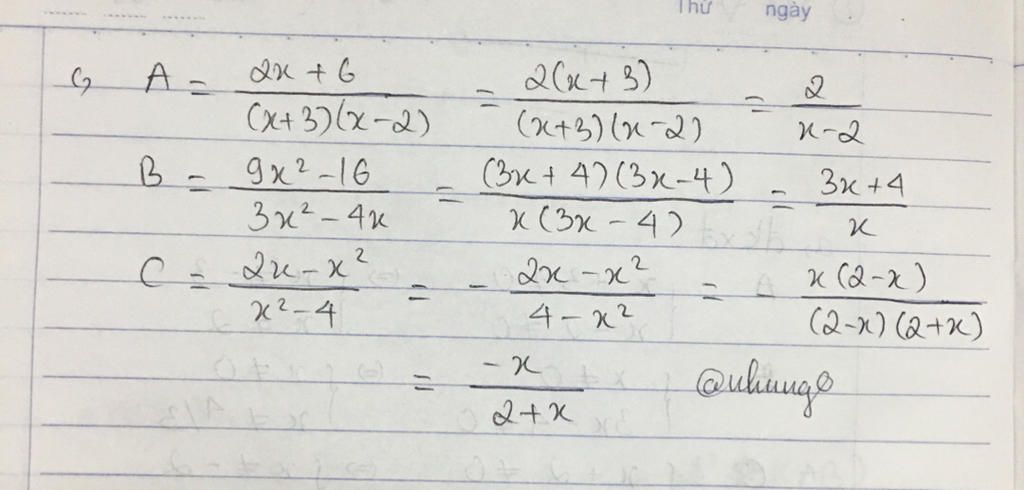 Thứ ngày
c, A = (2x + 6)/((x+3)(x-2)) = (2(x+3))/((x+3)(x-2)) = 2/(x-2)
B = (9x² - 16)/(3x² - 4x) = ((3x+4)(3x-4))/(x(3x-4)) = (3x+4)/x
C = (2x - x²)/(x² - 4) = - (2x - x²)/(4 - x²) = (x(2-x))/((2-x)(2+x))
= (-x)/(2+x) @nhung8